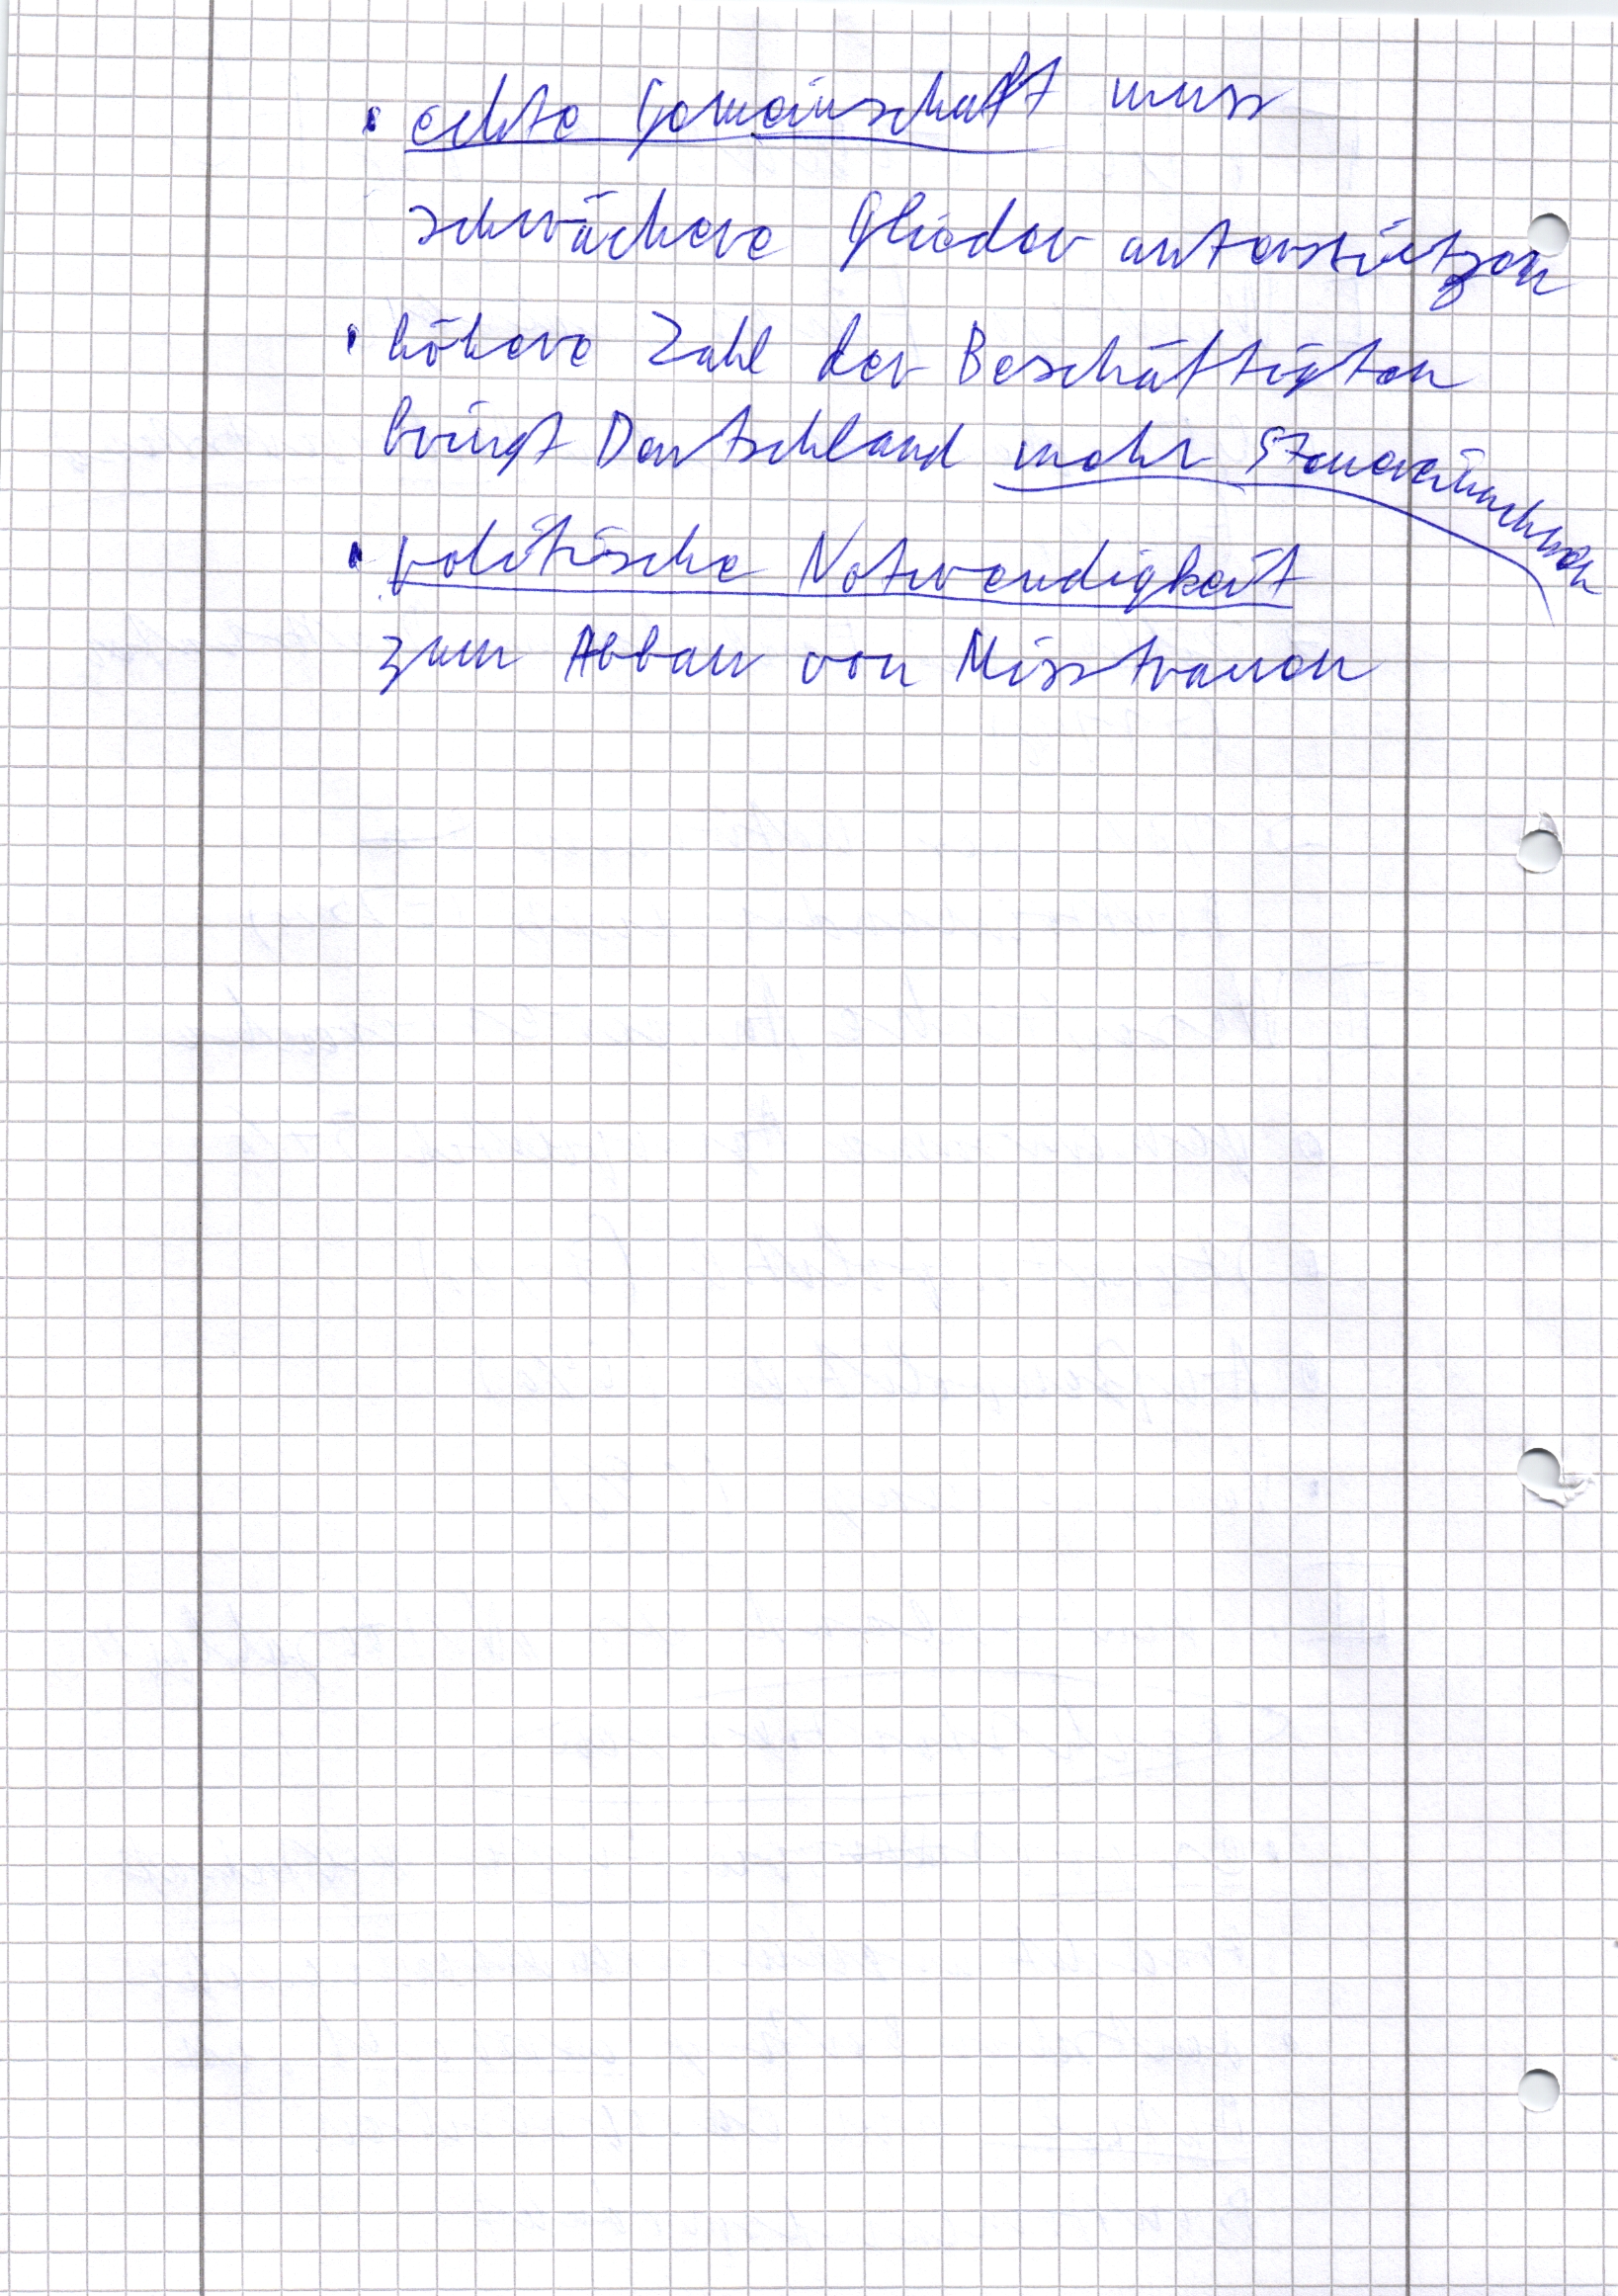 • echte Gemeinschaft muss
schwächere Glieder unterstützen
• höhere Zahl der Beschäftigten
bringt Deutschland mehr Steuereinnahmen
• politische Notwendigkeit
zum Abbau von Misstrauen